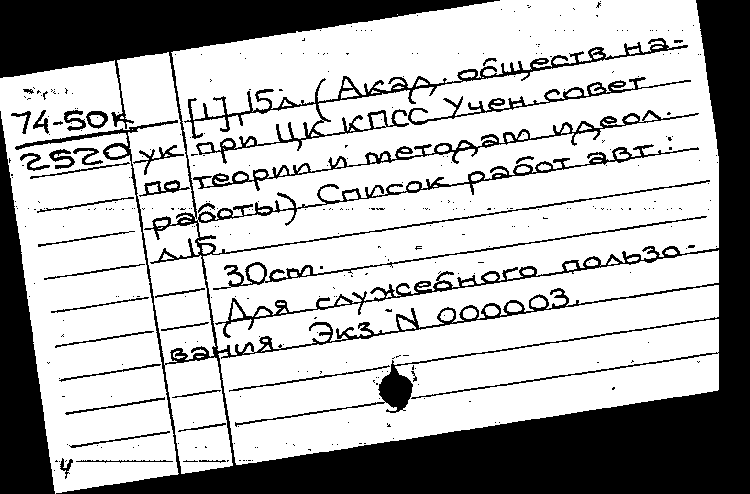 74-50к
2520
[1], 15л. (Акад. обществ. на-
ук при ЦК КПСС Учен. совет
по теории и методам идеол.
работы). Список работ авт.:
л.15.
30 ст.
Для служебного пользо-
вания. Экз. N 000003.
4